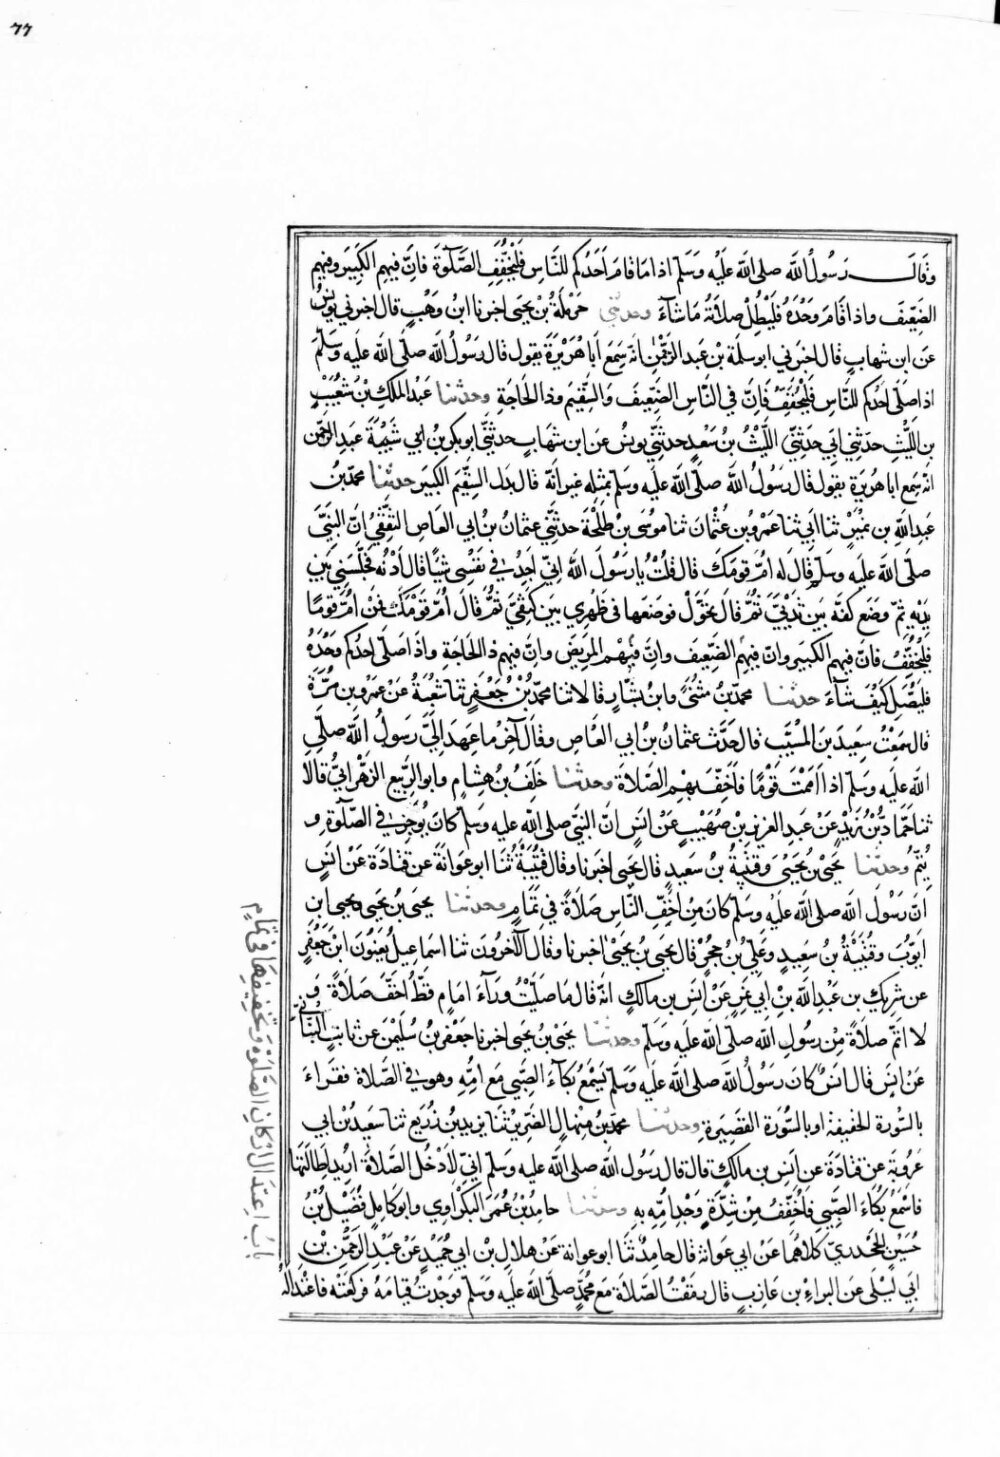 ٦٦
وقال رسول الله صلى الله عليه وسلم اذا ما قام احدكم للناس فليخفف الصلوة فان فيهم الكبير وفيهم
الضعيف واذا قام وحده فليطل صلاته ما شآء وحدثني حرملة بن يحيى اخبرنا ابن وهب قال اخبرني يونس
عن ابن شهاب قال اخبرني ابو سلمة بن عبد الرحمن انه سمع ابا هريرة يقول قال رسول الله صلى الله عليه وسلم
اذا صلى احدكم للناس فليخفف فان في الناس الضعيف والسقيم وذا الحاجة وحدثنا عبد الملك بن شعيب
بن الليث حدثني ابي حدثني الليث بن سعد حدثني يونس عن ابن شهاب حدثني ابو بكر بن ابي شيبة عبد الرحمن
انه سمع ابا هريرة يقول قال رسول الله صلى الله عليه وسلم بمثله غير انه قال بدل السقيم الكبير حدثنا محمد بن
عبد الله بن نمير ثنا ابي ثنا عمرو بن عثمان ثنا موسى بن طلحة حدثني عثمان بن ابي العاص الثقفي ان النبي
صلى الله عليه وسلم قال له ام قومك قال قلت يا رسول الله اني اجد في نفسي شيا قال ادنه فجلسني بين
يديه ثم وضع كفه بين ثديي ثم قال تحول فوضعها في ظهري بين كتفي ثم قال ام قومك فمن ام قوما
فليخفف فان فيهم الكبير وان فيهم الضعيف وان فيهم المريض وان فيهم ذا الحاجة واذا صلى احدكم وحده
فليصل كيف شآء حدثنا محمد بن مثنى وابن بشار قالا ثنا محمد بن جعفر ثنا شعبة عن عمرو بن مرة
قال سمعت سعيد بن المسيب قال حدث عثمان بن ابي العاص وقال آخر ما عهد الي رسول الله صلى
الله عليه وسلم اذا اممت قوما فاخف بهم الصلاة وحدثنا خلف بن هشام وابو الربيع الزهراني قالا
ثنا حماد بن زيد عن عبد العزيز بن صهيب عن انس ان النبي صلى الله عليه وسلم كان يوجز في الصلوة و
يتم وحدثنا يحيى بن يحيى وقتيبة بن سعيد قال يحيى اخبرنا وقال قتيبة ثنا ابو عوانة عن قتادة عن انس
ان رسول الله صلى الله عليه وسلم كان من اخف الناس صلاة في تمام وحدثنا يحيى بن يحيى ويحيى ابن
ايوب وقتيبة بن سعيد وعلي بن حجر قال يحيى بن يحيى اخبرنا وقال الآخرون ثنا اسماعيل يعنون ابن جعفر
عن شريك بن عبد الله بن ابي نمر عن انس بن مالك انه قال ما صليت ورآء امام قط اخف صلاة و
لا اتم صلاة من رسول الله صلى الله عليه وسلم وحدثنا يحيى بن يحيى اخبرنا جعفر بن سليمن عن ثابت البناني
عن انس قال انس كان رسول الله صلى الله عليه وسلم يسمع بكآء الصبي مع امه وهو في الصلاة فقراء
بالسورة الخفيفة او بالسورة القصيرة وحدثنا محمد بن منهال الضرير ثنا يزيد بن زريع ثنا سعيد بن ابي
عروبة عن قتادة عن انس بن مالك قال قال رسول الله صلى الله عليه وسلم اني لادخل الصلاة اريد اطالتها
فاسمع بكاء الصبي فاخفف من شدة وجد امه به وحدثنا حامد بن عمر البكراوي وابو كامل فضيل بن
حسين الجحدري كلاهما عن ابي عوانة قال حامد ثنا ابو عوانة عن هلال بن ابي حميد عن عبد الرحمن بن
ابي ليلى عن البراء بن عازب قال رمقت الصلاة مع محمد صلى الله عليه وسلم فوجدت قيامه فركعته فاعتداله
باب اعتدال اركان الصلوة وتخفيفها في تمام